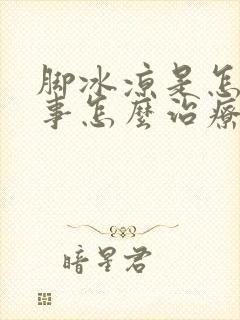 脚冰凉是怎
事怎麼治療
暗星君